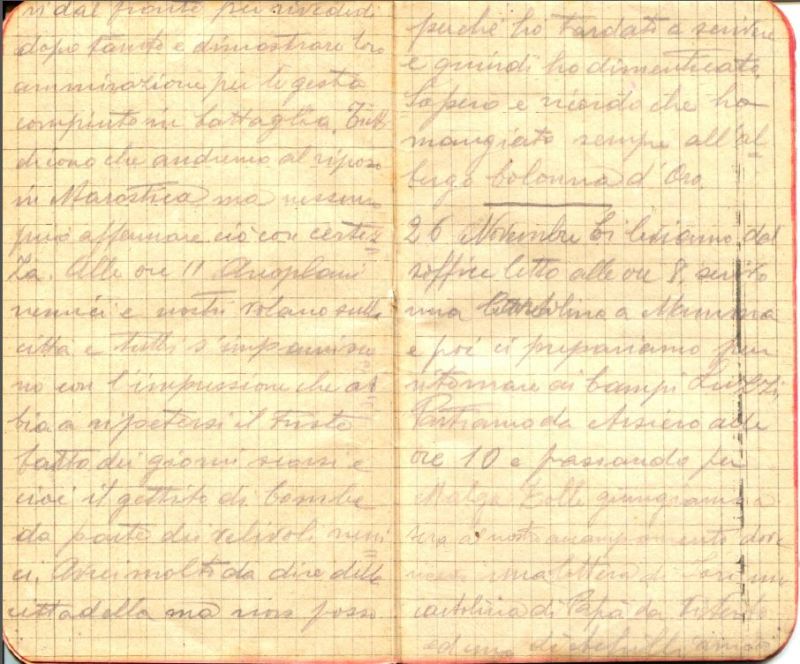 ri dal fronte per rivederli
dopo tanto e dimostrare loro
ammirazione per le gesta
compiute in battaglia. Tutti
dicono che andremo al riposo
in Marostica ma nessuno
può affermare ciò con certez-
za. Alle ore 11 Aeroplani
nemici e nostri volano sulla
città e tutti s'impaurisco
no con l'impressione che ab-
bia a ripetersi il triste
fatto dei giorni scorsi e
cioè il gettito di bombe
da parte dei velivoli nemi
ci. Avrei molto da dire della
cittadella ma non posso
perchè ho tardato a scrivere
e quindi ho dimenticato.
Sapero e ricordo che ho
mangiato sempre all'al-
bergo Colonna d'Oro.
26 Novembre Ci leviamo dal
soffice letto alle ore 8, scrivo
una Cartolina a Mamma
e poi ci prepariamo per
ritornare ai Campi Luzzi.
Partiamo da Arsiero alle
ore 10 e passando per
Malga Zolle giungiamo a
sera al nostro accampamento dove
una lettera di
cartolina di Papà da
ed una di